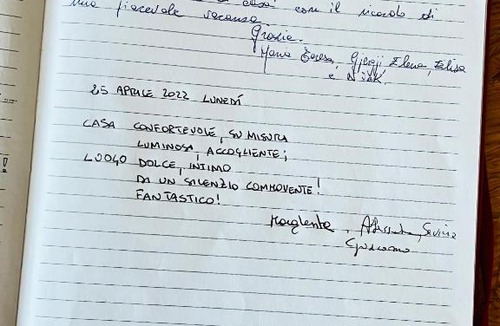 a casa con il ricordo di
una piacevole vacanza.
Grazie.
Maria Teresa, Gjergj, Elena, Elisa
e Nik.
25 APRILE 2022 LUNEDÍ
CASA CONFORTEVOLE, SU MISURA
LUMINOSA, ACCOGLIENTE;
LUOGO DOLCE, INTIMO
DI UN SILENZIO COMMOVENTE!
FANTASTICO!
Margherita, Alessandra, Savina
Giacomo
!